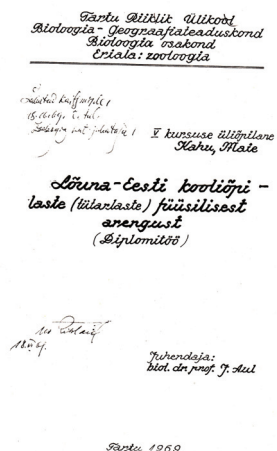 Tartu Riiklik Ülikool
Bioloogia-Geograafiateaduskond
Bioloogia osakond
Eriala: zooloogia
Lubatud kaitsmisele!
V kursuse üliõpilane
Kahu, Mate
Lõuna-Eesti kooliõpi-
laste (tütarlaste) füüsilisest
arengust
(Diplomitöö)
Juhendaja:
biol. dr. prof. J. Aul
Tartu 1969